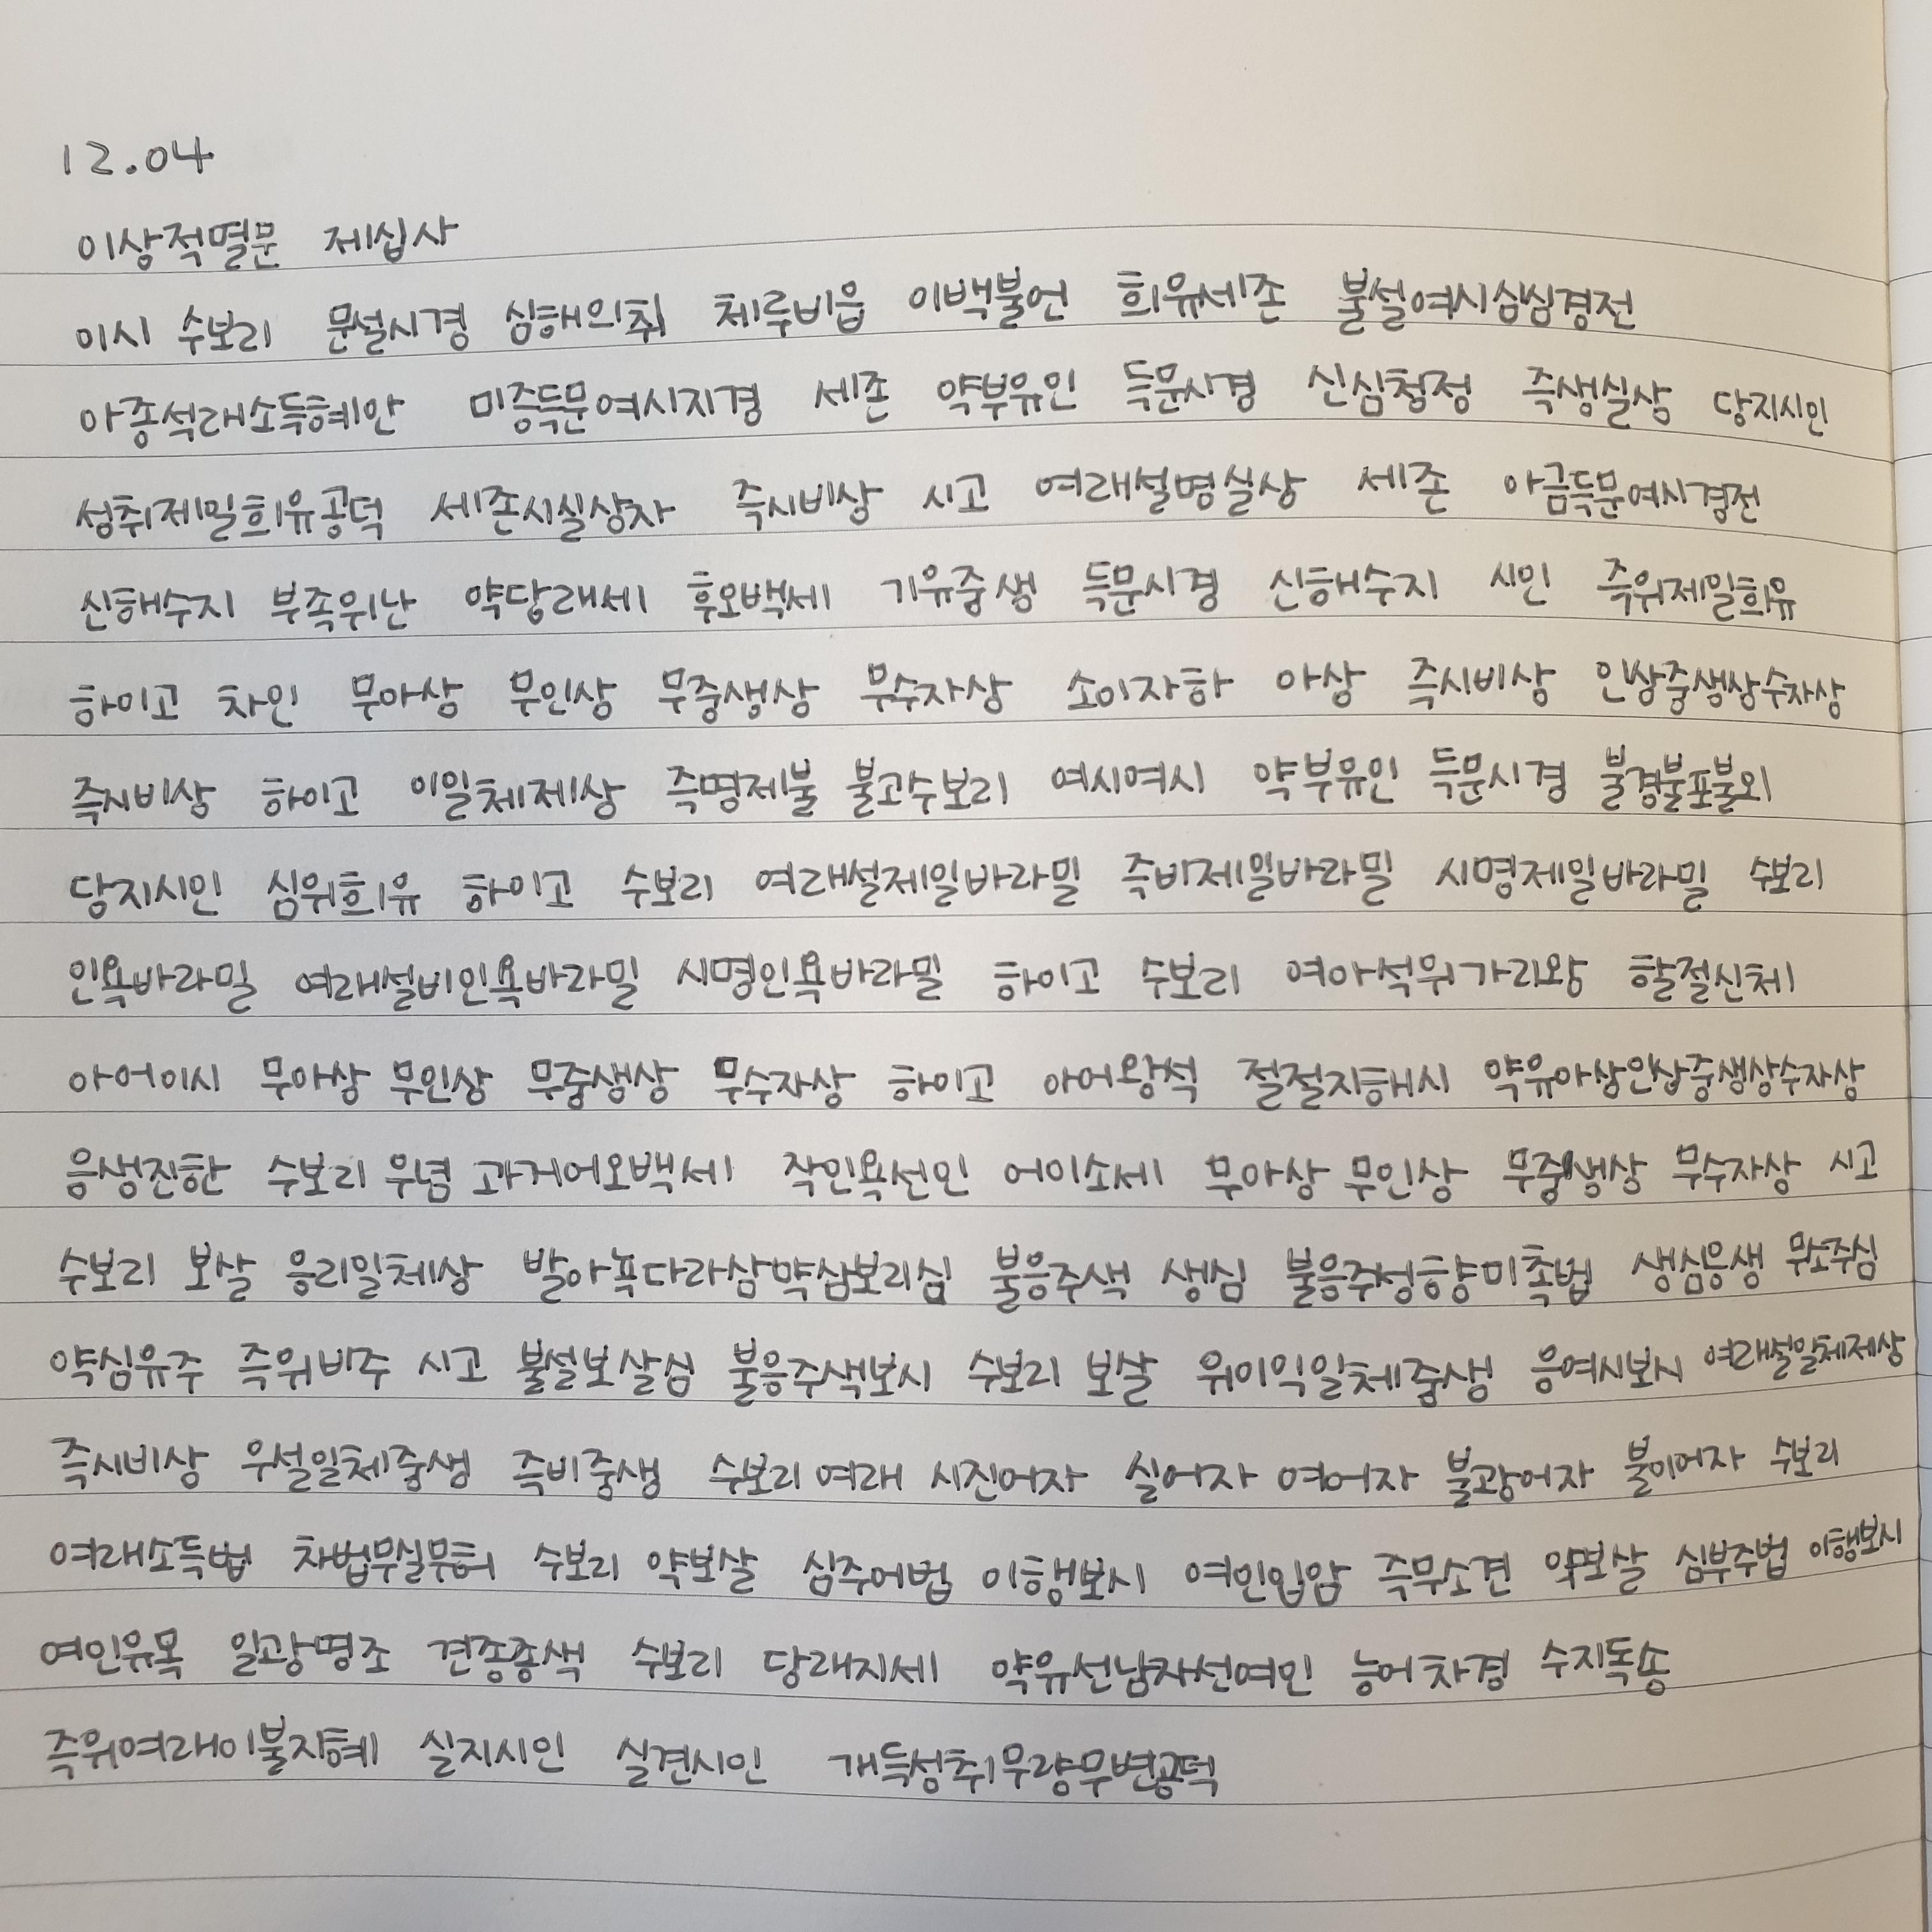 12.04
이상적멸문 제십사
이시 수보리 문설시경 심해의취 체루비읍 이백불언 희유세존 불설여시심심경전
아종석래소득혜안 미증득문여시지경 세존 약부유인 득문시경 신심청정 즉생실상 당지시인
성취제일희유공덕 세존시실상자 즉시비상 시고 여래설명실상 세존 아금득문여시경전
신해수지 부족위난 약당래세 후오백세 기유중생 득문시경 신해수지 시인 즉위제일희유
하이고 차인 무아상 무인상 무중생상 무수자상 소이자하 아상 즉시비상 인상중생상수자상
즉시비상 하이고 이일체제상 즉명제불 불고수보리 여시여시 약부유인 득문시경 불경불포불외
당지시인 심위희유 하이고 수보리 여래설제일바라밀 즉비제일바라밀 시명제일바라밀 수보리
인욕바라밀 여래설비인욕바라밀 시명인욕바라밀 하이고 수보리 여아석위가리왕 할절신체
아어이시 무아상 무인상 무중생상 무수자상 하이고 아어왕석 절절지해시 약유아상인상중생상수자상
응생진한 수보리 우념 과거어오백세 작인욕선인 어이소세 무아상 무인상 무중생상 무수자상 시고
수보리 보살 응리일체상 발아뇩다라삼먁삼보리심 불응주색 생심 불응주성향미촉법 생심응생 무소주심
약심유주 즉위비주 시고 불설보살심 불응주색보시 수보리 보살 위이익일체중생 응여시보시 여래설일체제상
즉시비상 우설일체중생 즉비중생 수보리 여래 시진어자 실어자 여어자 불광어자 불이어자 수보리
여래소득법 차법무실무허 수보리 약보살 심주어법 이행보시 여인입암 즉무소견 약보살 심부주법 이행보시
여인유목 일광명조 견종종색 수보리 당래지세 약유선남자선여인 능어차경 수지독송
즉위여래이불지혜 실지시인 실견시인 개득성취무량무변공덕